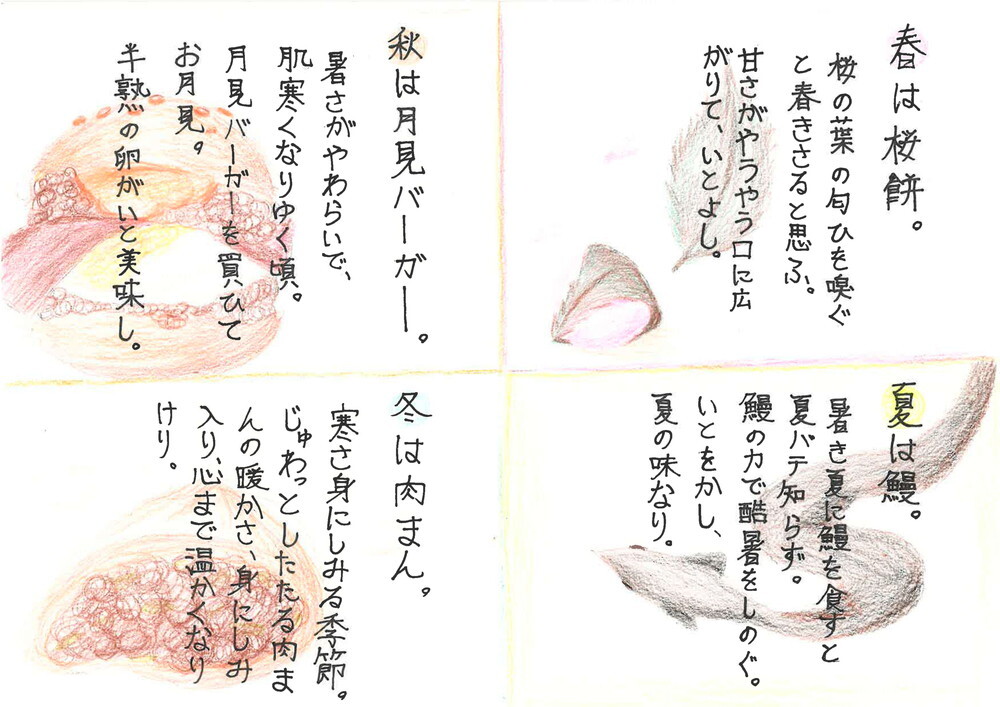 春は桜餅。
桜の葉の匂ひを嗅ぐ
と春きさると思ふ。
甘さがやうやう口に広
がりて、いとよし。
夏は鰻。
暑き夏に鰻を食すと
夏バテ知らず。
鰻の力で酷暑をしのぐ。
いとをかし、
夏の味なり。
秋は月見バーガー。
暑さがやわらいで、
肌寒くなりゆく頃。
月見バーガーを買ひて
お月見。
半熟の卵がいと美味し。
冬は肉まん。
寒さ身にしみる季節。
じゅわっとしたたる肉ま
んの暖かさ、身にしみ
入り、心まで温かくなり
けり。